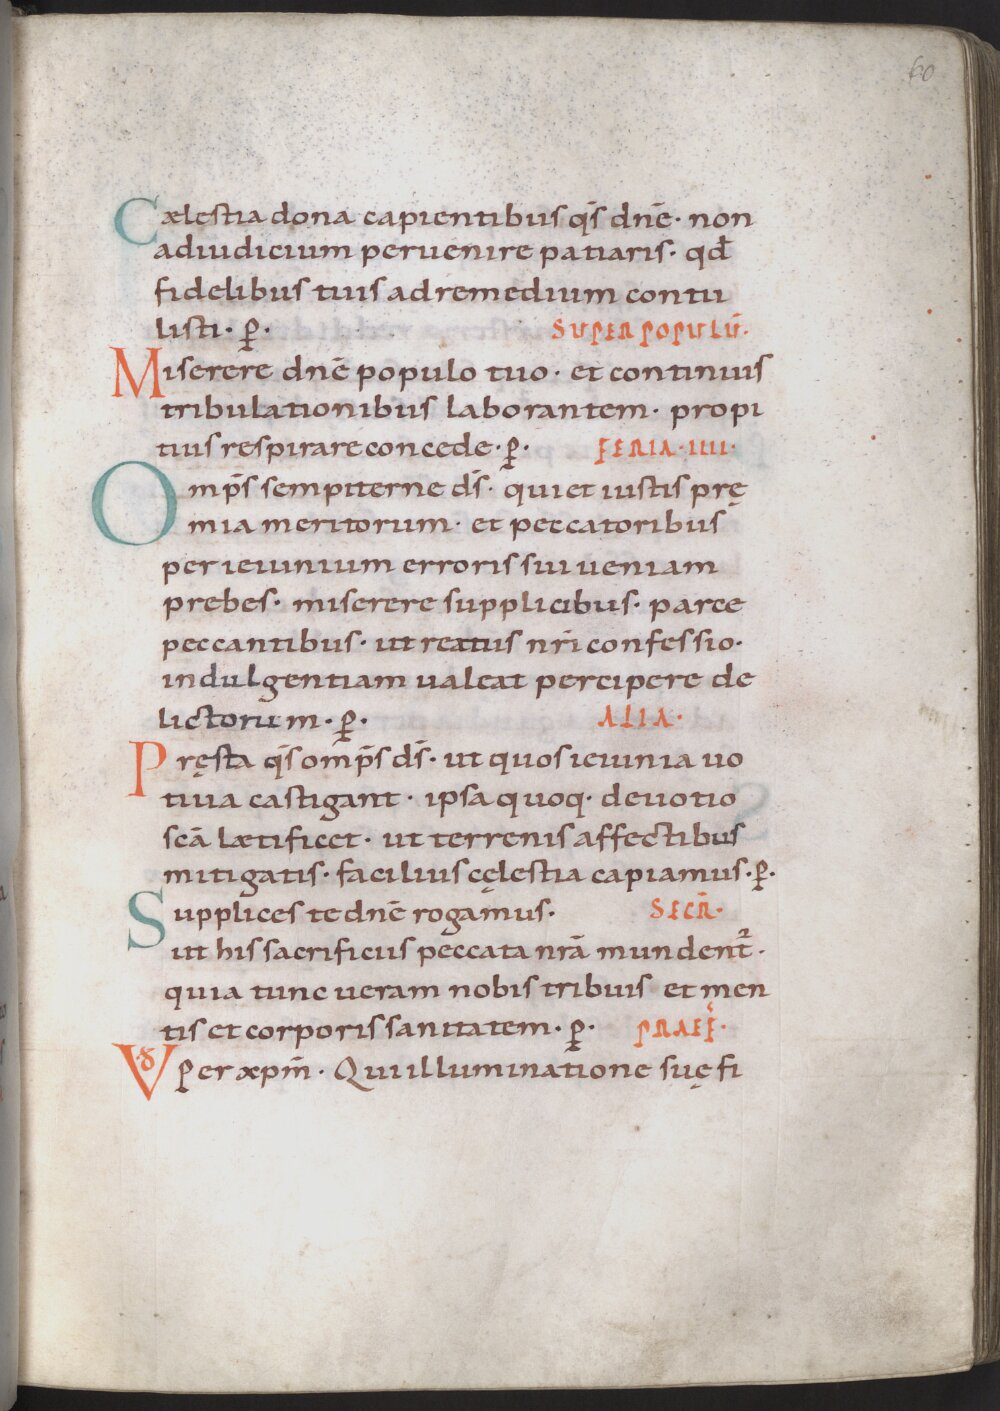 60
Cælestia dona capientibus q̄s dn̄e· non
adiudicium peruenire patiaris· qd̄
fidelibus tuis adremedium contu
listi· p̄· SUPER POPULŪ·
Miserere dn̄e populo tuo· et continuis
tribulationibus laborantem· propi
tius respirare concede· p̄· FERIA· IIII·
Omp̄s sempiterne ds̄· qui et iustis prę
mia meritorum· et peccatoribus
per ieiunium erroris sui ueniam
prebes· miserere supplicibus· parce
peccantibus· ut reatus nr̄i confessio·
indulgentiam ualeat percipere de
lictorum· p̄· ALIA·
Pręsta q̄s omp̄s ds̄· ut quos ieiunia uo
tiua castigant· ipsa quoq· deuotio
scā lætificet· ut terrenis affectibus
mitigatis· facilius cęlestia capiamus· p̄·
Supplices te dn̄e rogamus· SECR̄·
ut his sacrificiis peccata nrā mundent᷑·
quia tunc ueram nobis tribuis et men
tis et corporis sanitatem· p̄· PRAEF̄·
VD Per xpm̄· Qui illuminatione suę fi